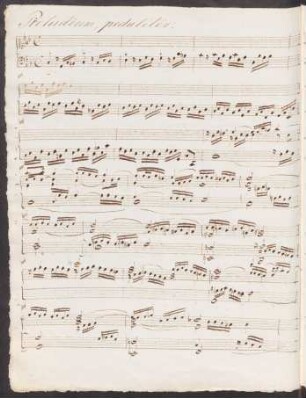 Preludium pedaliter.